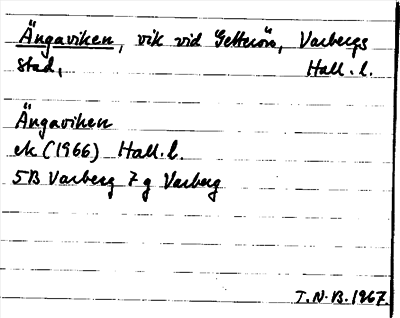 Ängaviken, vik vid Getterön, Varbergs
stad, Hall. l.
Ängaviken
ek (1966) Hall. l.
5B Varberg 7 g Varberg
T.N.B. 1967.